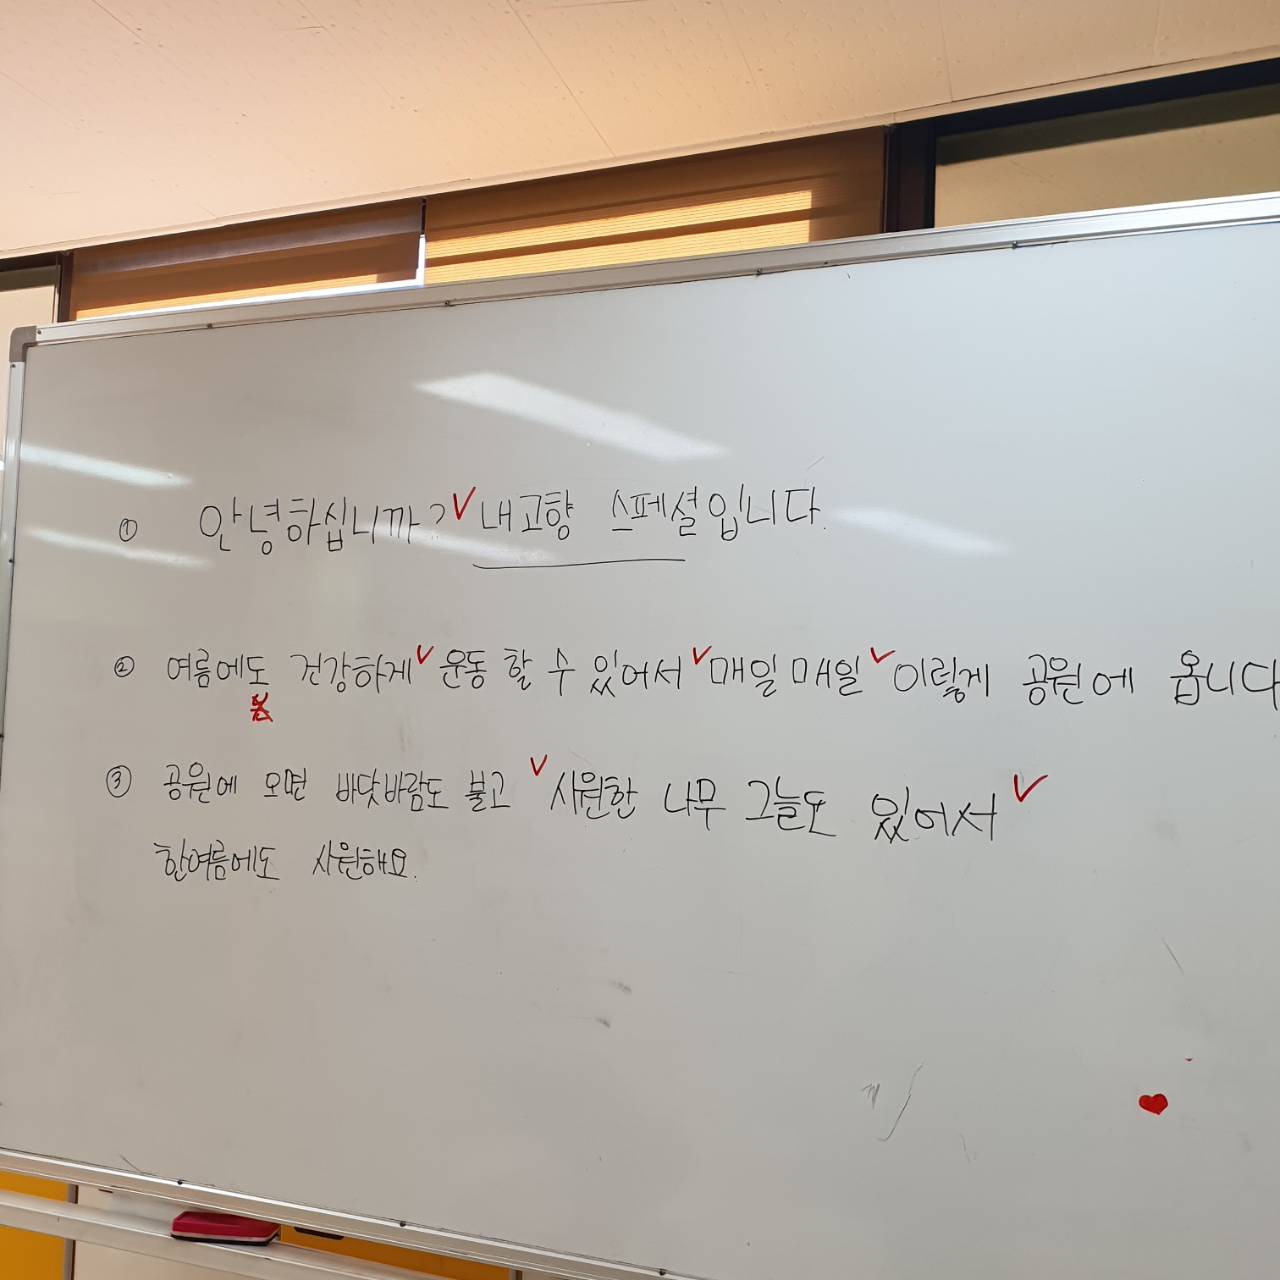 ① 안녕하십니까? ✓ 내고향 스페셜입니다.
② 여름에도 건강하게 ✓ 운동 할 수 있어서 ✓ 매일 매일 ✓ 이렇게 공원에 옵니다
③ 공원에 오면 바닷바람도 불고 ✓ 시원한 나무 그늘도 있어서 ✓
한여름에도 시원해요.